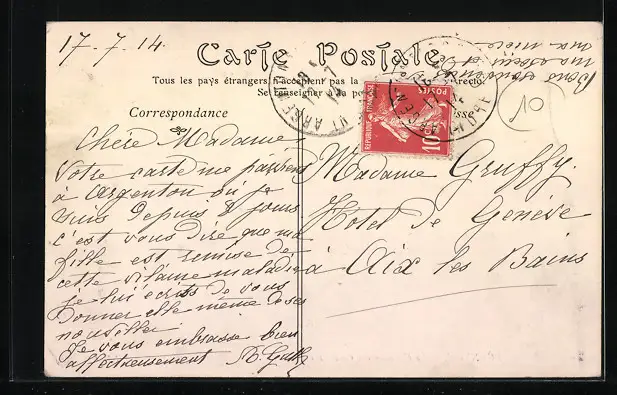 17-7-14
Carte Postale
Tous les pays étrangers n'acceptent pas la
Se renseigner à la
Correspondance
Chère Madame
Votre carte me parvient
à Argenton où je
suis depuis 8 jours
c'est vous dire que ma
fille est remise de
cette vilaine maladie
je lui écris de vous
donner elle même de ses
nouvelles
Je vous embrasse bien
affectueusement
Madame Gruffy.
Hotel de Genève
à Aix les Bains
Bons souvenirs
ma mère
REPUBLIQUE FRANÇAISE
POSTES
10
10